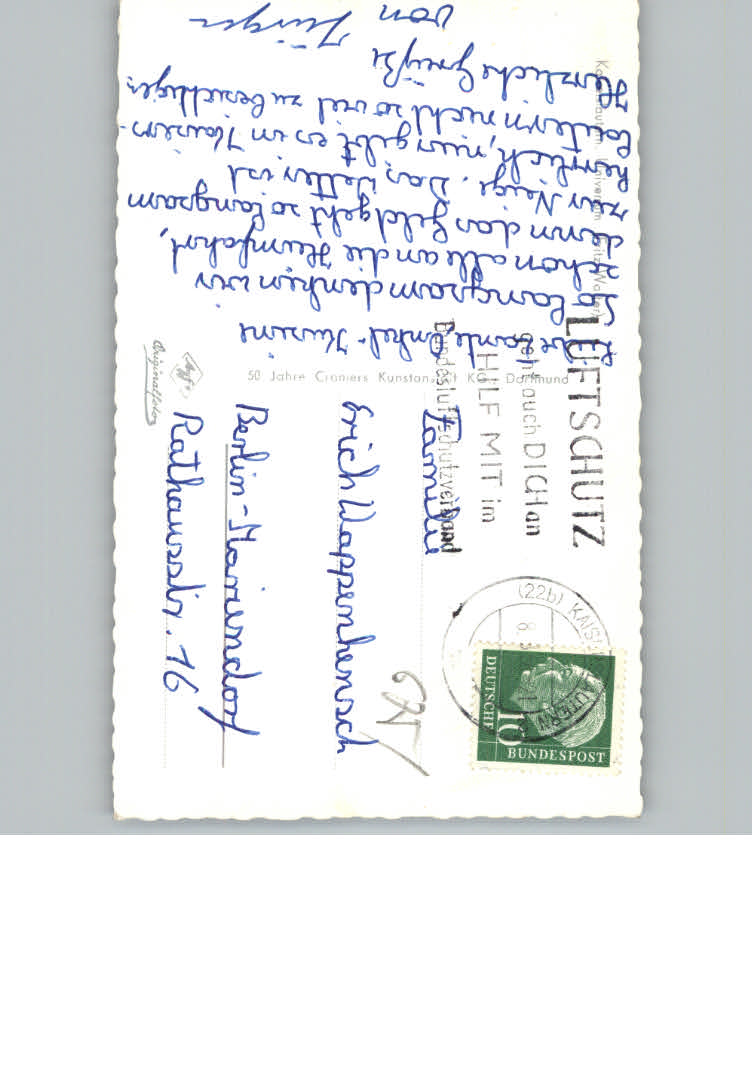 Liebe Tante, Onkel, Kusine
So langsam denken wir
schon alle an die Heimfahrt,
denn das Geld geht so langsam
zur Neige. Das Wetter ist
herrlich, nur gibt es in Kaisers-
lautern nicht so viel zu besichtigen.
Herzliche Grüße
von Jürgen
50 Jahre Croniers Kunstanstalt KG., Dortmund
Agfa
Originalfoto
LUFTSCHUTZ
geht auch DICH an
HILF MIT im
Bundesluftschutzverband
(22b) KAISERSLAUTERN
DEUTSCHE
BUNDESPOST
10
Familie
Erich Wappenhensch
Berlin-Mariendorf
Rathausstr. 16